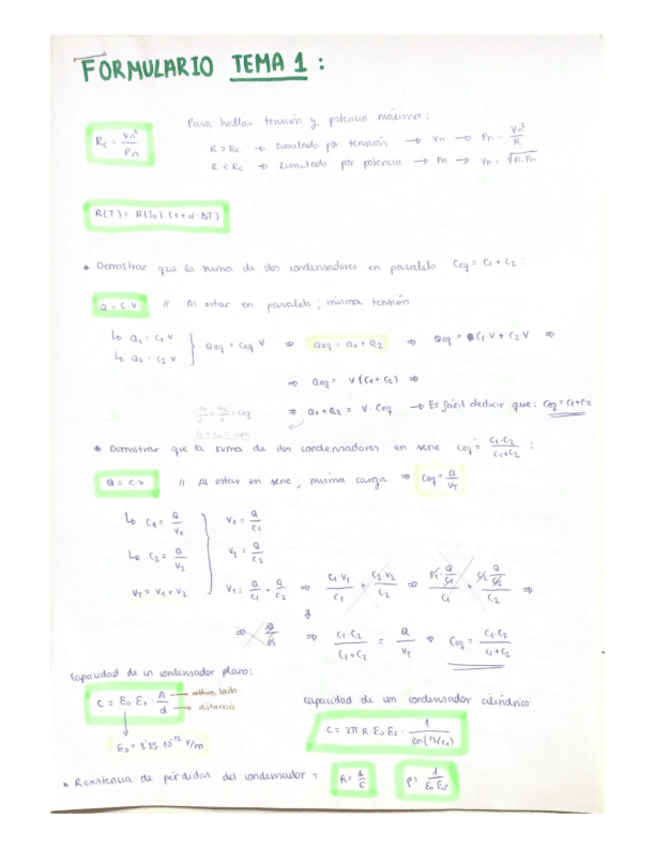 FORMULARIO TEMA 1 :
Para hallar tensión y potencia máxima:
Rc = Vn² / Pn
R > Rc → limitado por tensión → Vn → Pn = Vn² / R
R < Rc → limitado por potencia → Pn → Vn = √R·Pn
R(T) = R(T₀) (1+α·ΔT)
* Demostrar que la suma de dos condensadores en paralelo Ceq = C₁ + C₂ :
Q = C·V // Al estar en paralelo, misma tensión
↳ Q₁ = C₁·V
↳ Q₂ = C₂·V } Qeq = Ceq·V ⇒ Qeq = Q₁ + Q₂ ⇒ Qeq = C₁·V + C₂·V ⇒
⇒ Qeq = V (C₁ + C₂) ⇒
⇒ Q₁ + Q₂ = V · Ceq → Es fácil deducir que: Ceq = C₁+C₂
* Demostrar que la suma de dos condensadores en serie Ceq = C₁·C₂ / C₁+C₂ :
Q = C·V // Al estar en serie, misma carga ⇒ Ceq = Q / VT
↳ C₁ = Q / V₁ V₁ = Q / C₁
↳ C₂ = Q / V₂ V₂ = Q / C₂
VT = V₁ + V₂ VT = Q / C₁ + Q / C₂ ⇒ C₁·V₁ / C₁ + C₂·V₂ / C₂ ⇒
⇒ C₁·C₂ / C₁+C₂ = Q / VT ⇒ Ceq = C₁·C₂ / C₁+C₂
Capacidad de un condensador plano:
C = ε₀ εr · A / d
lado
distancia
ε₀ = 8'85·10⁻¹² F/m
Capacidad de un condensador cilíndrico:
C = 2π R·ε₀ εr · 1 / ln(r₂/r₁)
* Resistencia de pérdidas del condensador = R = / C ρ = 1 / ε₀ εr